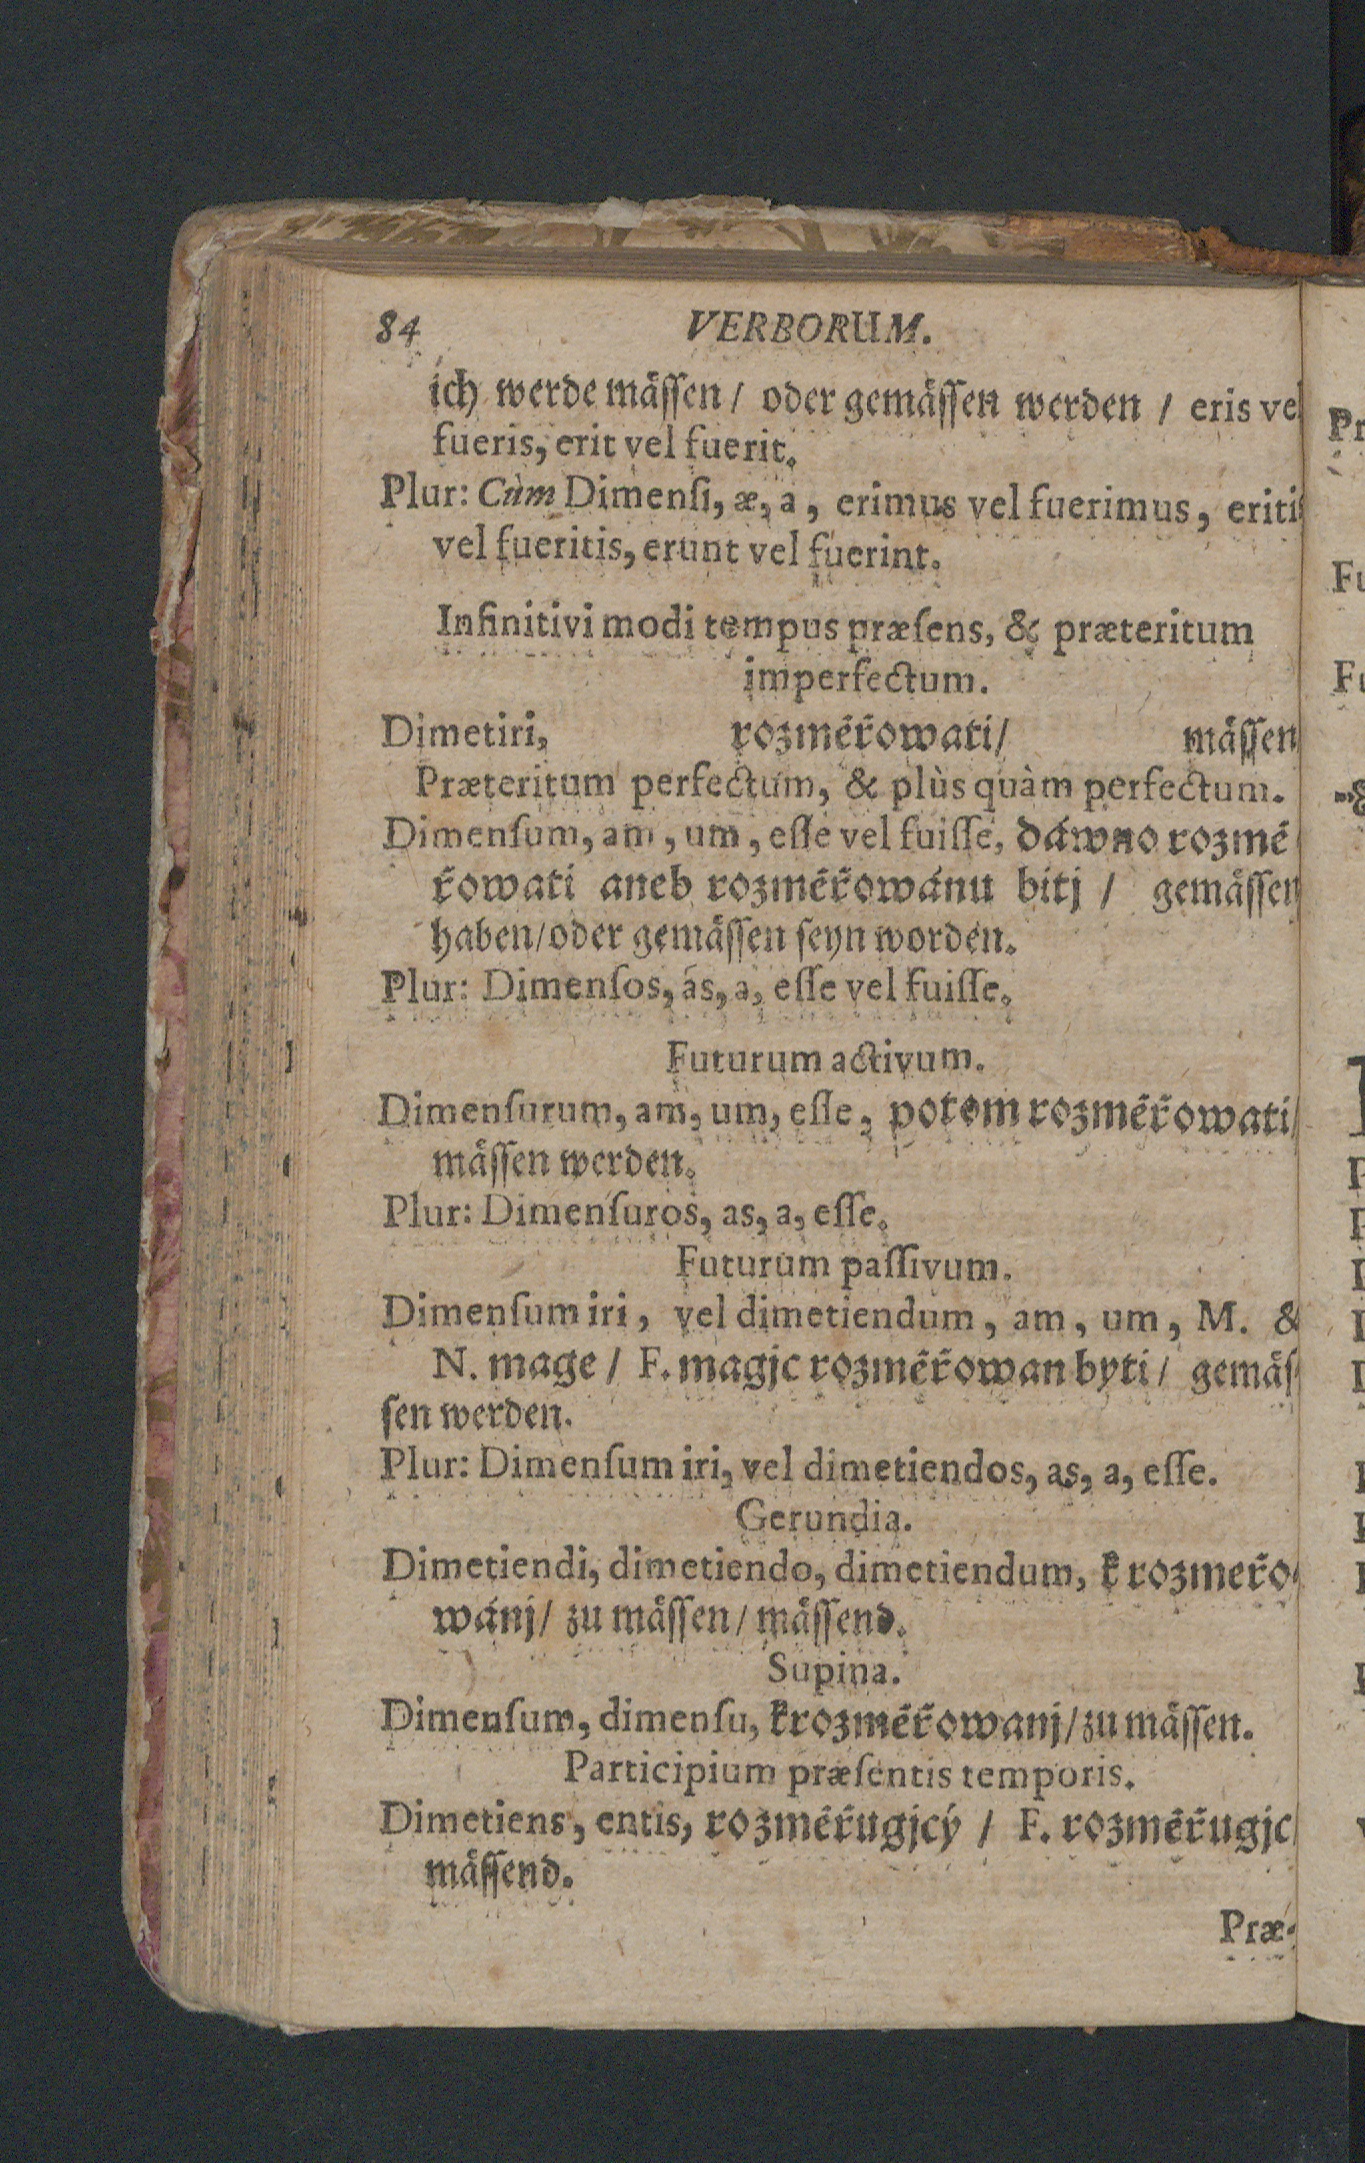 84 VERBORUM.
ich werde mässen / oder gemässen werden / eris vel
fueris, erit vel fuerit.
Plur: Cùm Dimenſi, æ, a, erimus vel fuerimus, eritis
vel fueritis, erunt vel fuerint.
Infinitivi modi tempus præſens, & præteritum
imperfectum.
Dimetiri, rozměřowati/ mässen
Præteritum perfectum, & plùs quàm perfectum.
Dimenſum, am, um, eſſe vel fuiſſe, dáwno rozmě
řowati aneb rozměřowánu bitj / gemässen
haben/oder gemässen ſeyn worden.
Plur: Dimenſos, as, a, eſſe vel fuiſſe.
Futurum activum.
Dimenſurum, am, um, eſſe, potom rozměřowati/
mässen werden.
Plur: Dimenſuros, as, a, eſſe.
Futurum paſſivum.
Dimenſum iri, vel dimetiendum, am, um, M. &
N. mage / F. magjc rozměřowan byti / gemäſ
ſen werden.
Plur: Dimenſum iri, vel dimetiendos, as, a, eſſe.
Gerundia.
Dimetiendi, dimetiendo, dimetiendum, k rozmeřo-
wánj/ zu mässen / mässend.
Supina.
Dimenſum, dimenſu, k rozměřowanj/zu mässen.
Participium præſentis temporis.
Dimetiens, entis, rozměřugjcý / F. rozměřugjc
mässend.
Præ-